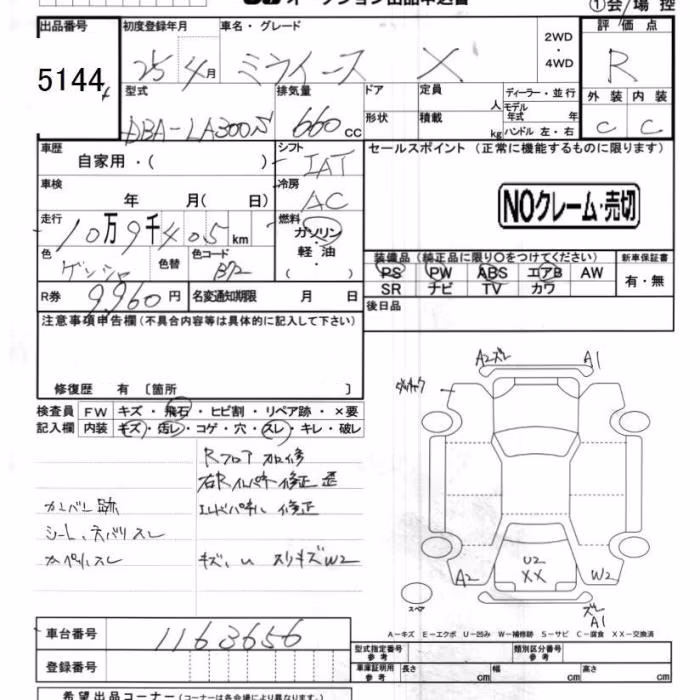 オークション出品申込書
①会/場控
出品番号 初度登録年月 車名・グレード 2WD・4WD 評価点
5144 25年 4月 ミライース X R
型式 排気量 ドア 定員 人 ディーラー・並行 外装 内装
DBA-LA300S 660cc 形状 積載 kg モデル年式 年 ハンドル 左・右 C C
車歴 シフト セールスポイント (正常に機能するものに限ります)
自家用・( ) IAT
車検 冷房
年 月( 日) AC
NOクレーム・売切
走行 燃料
10万9千405km ガソリン・軽油・( )
色 色替 色コード 装備品 (純正品に限り○をつけてください) 新車保証書
PS PW ABS エアB AW 有・無
R券 9,960円 名変通知期限 月 日 SR ナビ TV カワ
後日品
注意事項申告欄(不具合内容等は具体的に記入して下さい)
修復歴 有 〔箇所 〕
検査員 FW キズ・飛石・ヒビ割・リペア跡・×要
記入欄 内装 キズ・汚レ・コゲ・穴・スレ・キレ・破レ
Rフロア 加修
右Rインパネ 修正 歪
カンバン跡
シート、ネバリスレ
キズ、凹 スリキズW2
A2ズレ A1
U2
XX
A2 W2
スペア
ズレ
A1
A-キズ E-エクボ U-凹み W-補修跡 S-サビ C-腐食 XX-交換済
車台番号 1163656
型式指定番号 参考 類別区分番号 参考
登録番号 車庫証明用 参考 長さ cm 幅 cm 高さ cm
希望出品コーナー(コーナーは各会場により異なります。)